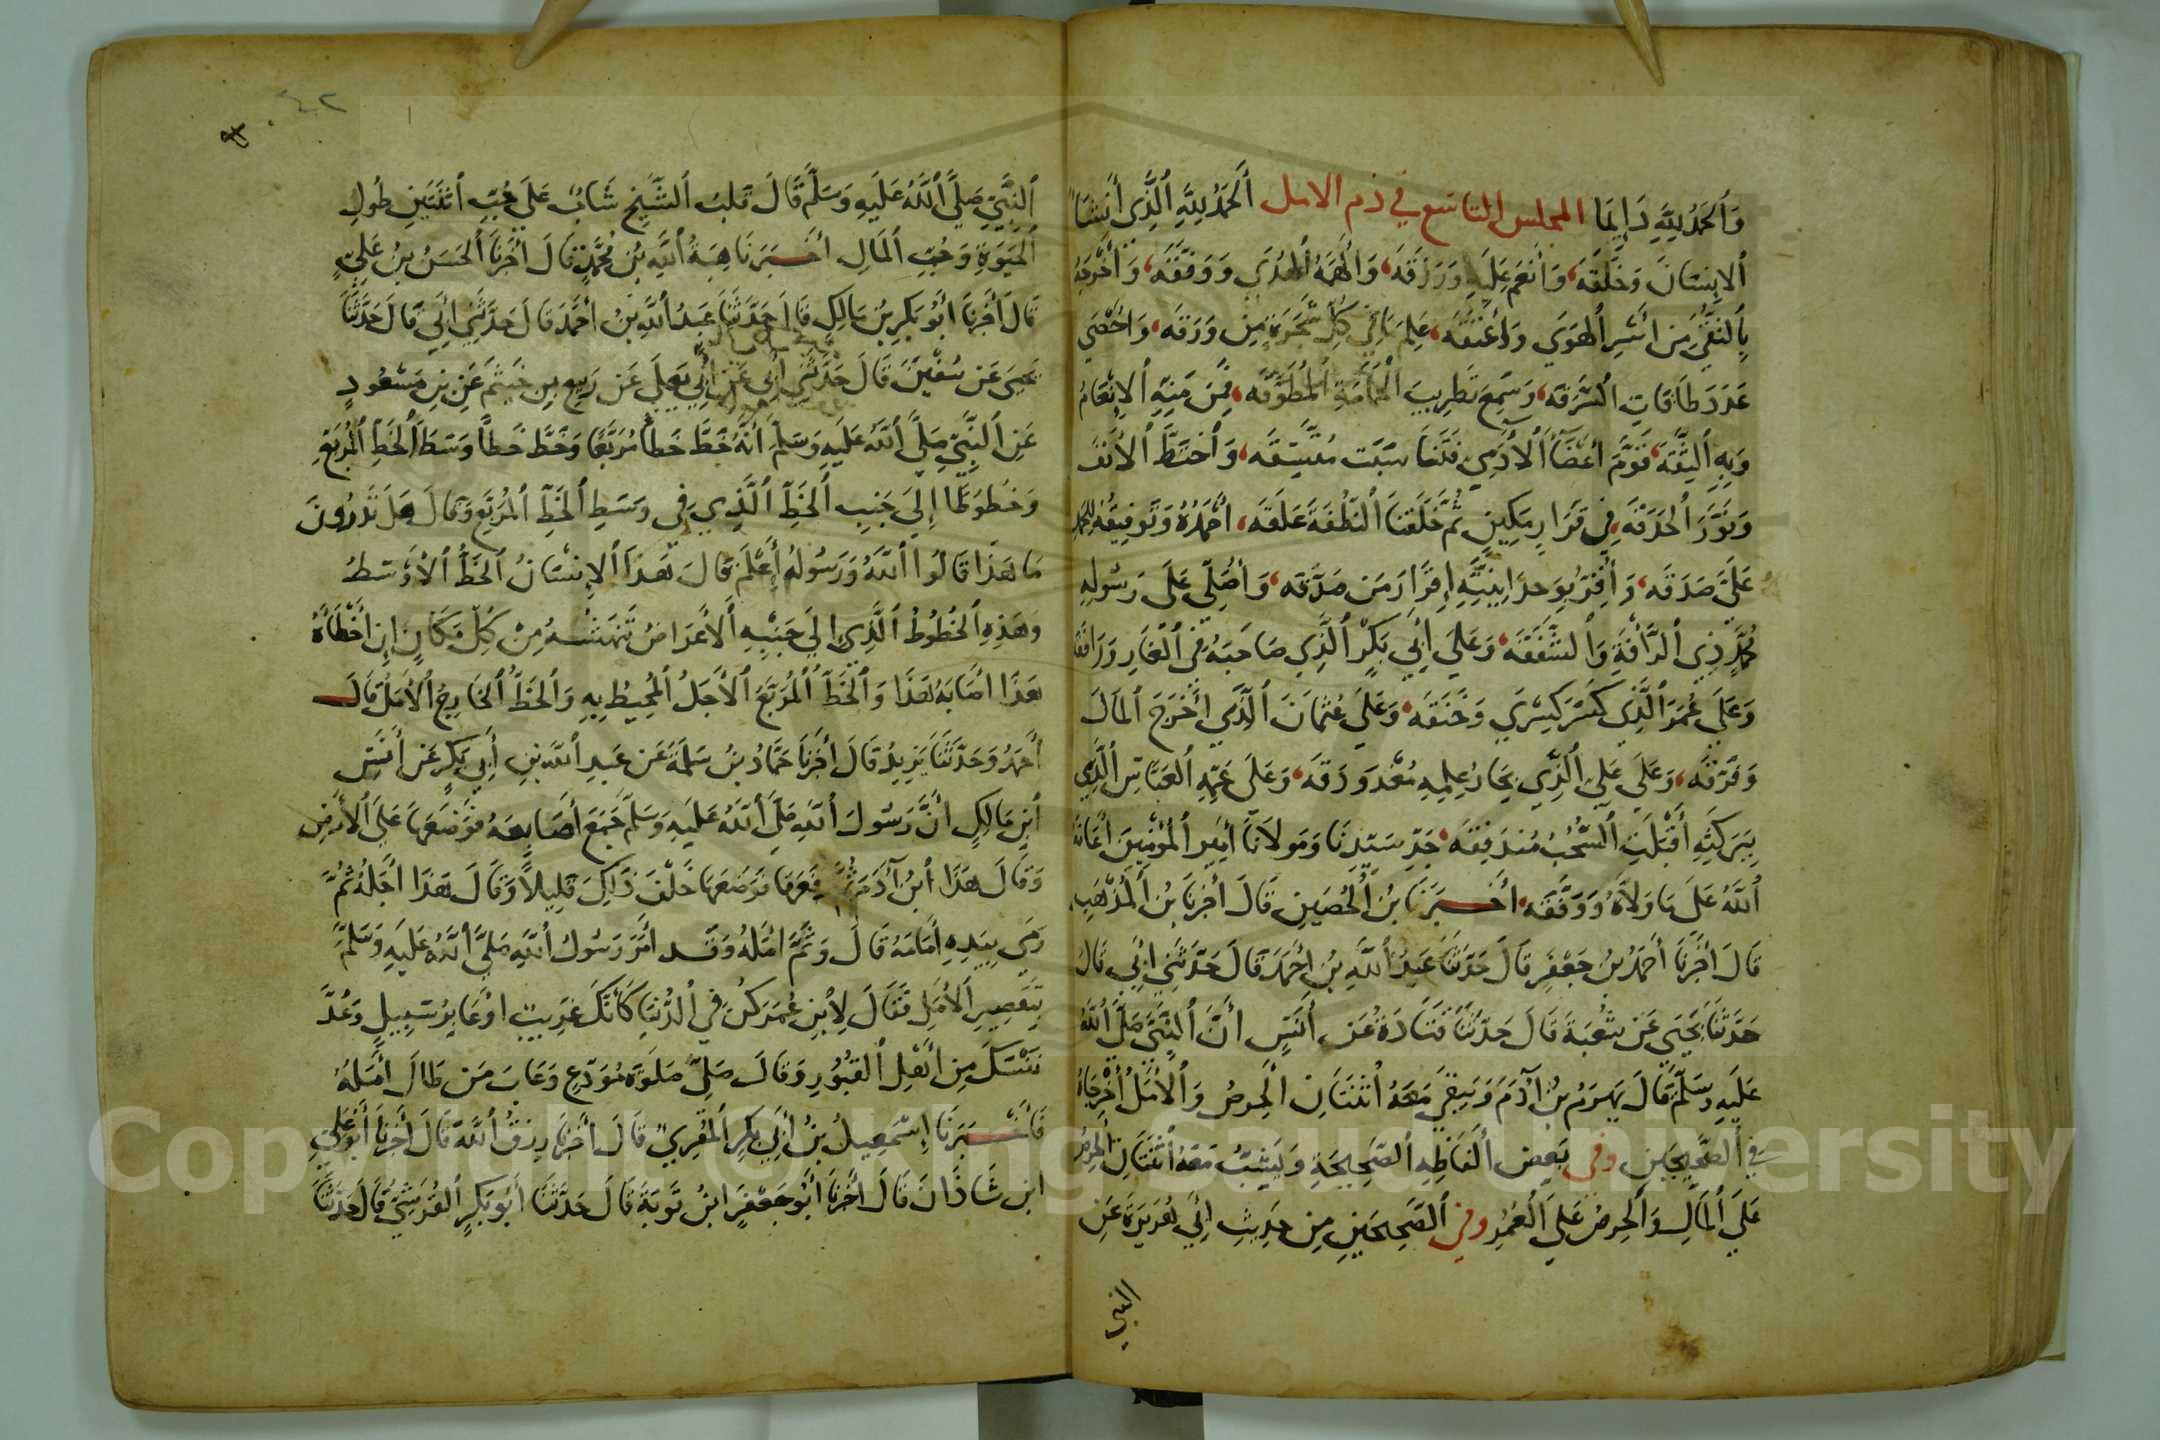 وَالحَمْدُ لِلَّهِ دَائِمًا المجلس التاسع في ذم الامل اَلحَمْدُ لِلَّهِ الَّذِي أَنْشَأَ
الاِنْسَانَ وَخَلَقَهُ وَاَنْعَمَ عَلَيْهِ وَرَزَقَهُ وَاَلْهَمَهُ الْهُدَي وَوَفَّقَهُ وَاَخْرَجَهُ
بِالتُّقَي مِنْ اَسْرِ الْهَوَي وَاَعْتَقَهُ عَلِمَ مَا فِي كُلِّ شَجَرَةٍ مِنْ وَرَقَه وَاَحْصَي
عَدَدَ طَاقَاتِ السَّرَقَه وَسَمِعَ تَطْرِيبَ الْحَمَامَةِ الْمُطَوَّقَه فَمِنْ مَنِّهِ الاِنْعَامُ
وَبِهِ الثِّقَةُ قَوَّمَ اَعْضَآءَ الآدَمِي فَتَنَاسَبَت مُتَّسِقَه وَاَخْتَطَّ الاَنْفَ
وَنَوَّرَ الْحَدَقَه فِي قَرَارٍ مَكِينٍ ثُمَّ خَلَقْنَا النُّطْفَةَ عَلَقَه اَحْمَدُهُ وَتَوْفِيقُهُ لِلْحَمْدِ
عَلَيَّ صَدَقَه وَاُقِرُّ بِوَحدَانِيَّتِهِ إِقْرَارَ مَن صَدَّقَه وَاُصَلِّي عَلَي رَسُولِهِ
مُحَمَّدٍ ذِي الرَّأْفَةِ وَالشَّفَقَه وَعَلَي اَبِي بَكْرٍ الَّذِي صَاحَبَهُ فِي الْغَارِ وَرَافَقَه
وَعَلَي عُمَرَ الَّذِي كَسَرَ كِسْرَي وَخَنَقَه وَعَلَي عُثْمَانَ الَّذِي اَخْرَجَ الْمَالَ
وَفَرَّقَه وَعَلَي عَلِي الَّذِي بِحَارُ عِلْمِهِ مُغْدَوْدِقَه وَعَلَي عَمِّهِ الْعَبَّاسِ الَّذِي
بِبَرَكَتِهِ أَقْبَلَتِ السُّحُبُ مُنْدَفِقَه جَدِّ سَيِّدِنَا وَمَوْلاَنَا أَمِيرِ الْمُؤْمِنِينَ اَعَانَهُ
اللَّهُ عَلَي مَا وَلاَّهُ وَوَفَّقَه أَخْبَرَنَا بْنُ الْحُصَيْنِ قَالَ اَخْبَرَنَا بْنُ الْمُذْهِبِ
قَالَ اَخْبَرَنَا أَحْمَدُ بْنُ جَعْفَرٍ قَالَ حَدَّثَنَا عَبْدُ اللَّهِ بْنُ اَحْمَدَ قَالَ حَدَّثَنِي اَبِي قَالَ
حَدَّثَنَا يَحْيَي عَنْ شُعْبَةَ قَالَ حَدَّثَنَا قَتَادَةُ عَنْ أَنَسٍ أَنَّ النَّبِيَّ صَلَّي اللَّهُ
عَلَيْهِ وَسَلَّمَ قَالَ يَهْرَمُ بْنُ آدَمَ وَيَبْقَي مَعَهُ اثْنَتَانِ الْحِرْصُ وَالاَمَلُ أَخْرَجَاهُ
فِي الصَّحِيحَينِ وفي بَعْضِ أَلْفَاظِهِ الصَّحِيحَةِ وَيَشِبُّ مَعَهُ اثْنَتَانِ الْحِرْصُ
عَلَي الْمَالِ وَالْحِرْصُ عَلَي الْعُمُرِ وفي الصَّحِيحَينِ مِنْ حَدِيثِ اَبِي هُرَيْرَةَ عَنِ
النبي
النَّبِيِّ صَلَّي اللَّهُ عَلَيْهِ وَسَلَّمَ قَالَ قَلْبُ الشَّيْخِ شَابٌّ عَلَي حُبِّ اثْنَتَيْنِ طُولِ
الْحَيَوةِ وَحُبِّ الْمَالِ اَخْبَرَنَا هِبَةُ اللَّهِ بْنُ مُحَمَّدٍ قَالَ اَخْبَرَنَا الْحَسَنُ بْنُ عَلِيٍّ
قَالَ اَخْبَرَنَا اَبُو بَكْرِ بْنُ مَالِكٍ قَالَ حَدَّثَنَا عَبْدُ اللَّهِ بْنُ اَحْمَدَ قَالَ حَدَّثَنِي اَبِي قَالَ حَدَّثَنَا
يَحْيَي عَنْ سُفْيَنَ قَالَ حَدَّثَنِي أَبِي عَنْ أَبِي يَعْلَي عَنْ رَبِيعِ بْنِ خَيْثَمٍ عَنِ بْنِ مَسْعُودٍ
عَنِ النَّبِيِّ صَلَّي اللَّهُ عَلَيْهِ وَسَلَّمَ اَنَّهُ خَطَّ خَطًّا مُرَبَّعًا وَخَطَّ خَطًّا وَسَطَ الْخَطِّ الْمُرَبَّعِ
وَخُطُوطًا إِلَي جَنْبِ الْخَطِّ الَّذِي فِي وَسَطِ الْخَطِّ الْمُرَبَّعِ وَقَالَ هَلْ تَدْرُونَ
مَا هَذَا قَالُوا اللَّهُ وَرَسُولُهُ أَعْلَمُ قَالَ هَذَا الاِنْسَانُ الْخَطُّ الاَوْسَطُ
وَهَذِهِ الْخُطُوطُ الَّذِي إِلَي جَنْبِهِ الاَعْرَاضُ تَنْهَشُهُ مِنْ كُلِّ مَكَانٍ إِنْ اَخْطَأَهُ
هَذَا اَصَابَهُ هَذَا وَالْخَطُّ الْمُرَبَّعُ الاَجَلُ الْمُحِيطُ بِهِ وَالْخَطُّ الْخَارِجُ الاَمَلُ قَالَ
أَحْمَدُ وَحَدَّثَنَا يَزِيدُ قَالَ اَخْبَرَنَا حَمَّادُ بْنُ سَلَمَةَ عَنْ عَبْدِ اللَّهِ بْنِ أَبِي بَكْرٍ عَنْ أَنَسِ
ابْنِ مَالِكٍ اَنَّ رَسُولَ اللَّهِ صَلَّي اللَّهُ عَلَيْهِ وَسَلَّمَ جَمَعَ أَصَابِعَهُ فَوَضَعَهَا عَلَي الاَرْضِ
وَقَالَ هَذَا ابْنُ آدَمَ ثُمَّ رَفَعَهَا فَوَضَعَهَا خَلْفَ ذَلِكَ قَلِيلاً وَقَالَ هَذَا اَجَلُهُ ثُمَّ
رَمَي بِيَدِهِ أَمَامَهُ قَالَ وَثَمَّ اَمَلُهُ وَقَد اَمَرَ رَسُولُ اللَّهِ صَلَّي اللَّهُ عَلَيْهِ وَسَلَّمَ
بِتَقْصِيرِ الاَمَلِ فَقَالَ لاِبْنِ عُمَرَ كُنْ فِي الدُّنْيَا كَأَنَّكَ غَرِيبٌ اَوْ عَابِرُ سَبِيلٍ وَعُدَّ
نَفْسَكَ مِنْ اَهْلِ الْقُبُورِ وَقَالَ صَلِّ صَلَوةَ مُوَدِّعٍ وَعَابَ مَن طَالَ اَمَلُهُ
فَأَخْبَرَنَا إِسْمَعِيلُ بْنُ أَبِي بَكْرٍ الْمُقْرِي قَالَ اَخْبَرَنَا رِزْقُ اللَّهِ قَالَ اَخْبَرَنَا أَبُو عَلِي
ابْنُ شَاذَانَ قَالَ اَخْبَرَنَا اَبُو جَعْفَرٍ ابْنُ تَوْبَةَ قَالَ حَدَّثَنَا أَبُو بَكْرٍ الْقُرَشِي قَالَ حَدَّثَنَا
Copyright © King Saud University